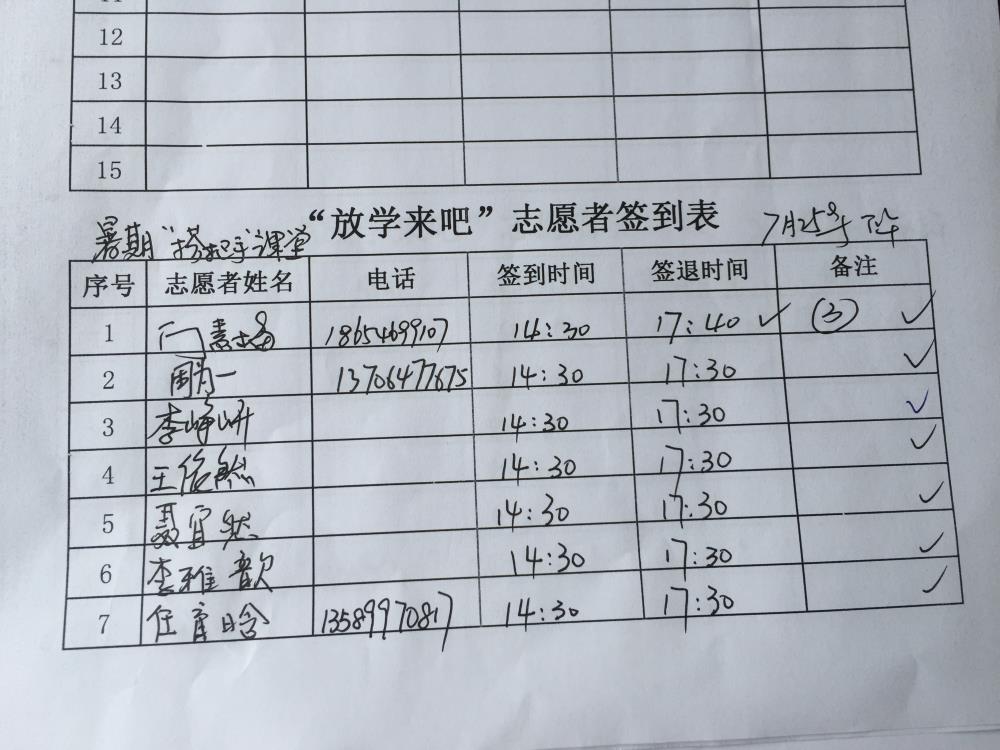 11
12
13
14
15
“放学来吧”志愿者签到表
暑期“搭把手”课堂 7月25号下午
序号 志愿者姓名 电话 签到时间 签退时间 备注
1 18654699107 14:30 17:40 ✓ ③ ✓
2 周为一 13706477675 14:30 17:30 ✓
3 李峥妍 14:30 17:30 ✓
4 王俊然 14:30 17:30 ✓
5 聂宜然 14:30 17:30 ✓
6 李雅歆 14:30 17:30 ✓
7 任育晗 13589970817 14:30 17:30 ✓